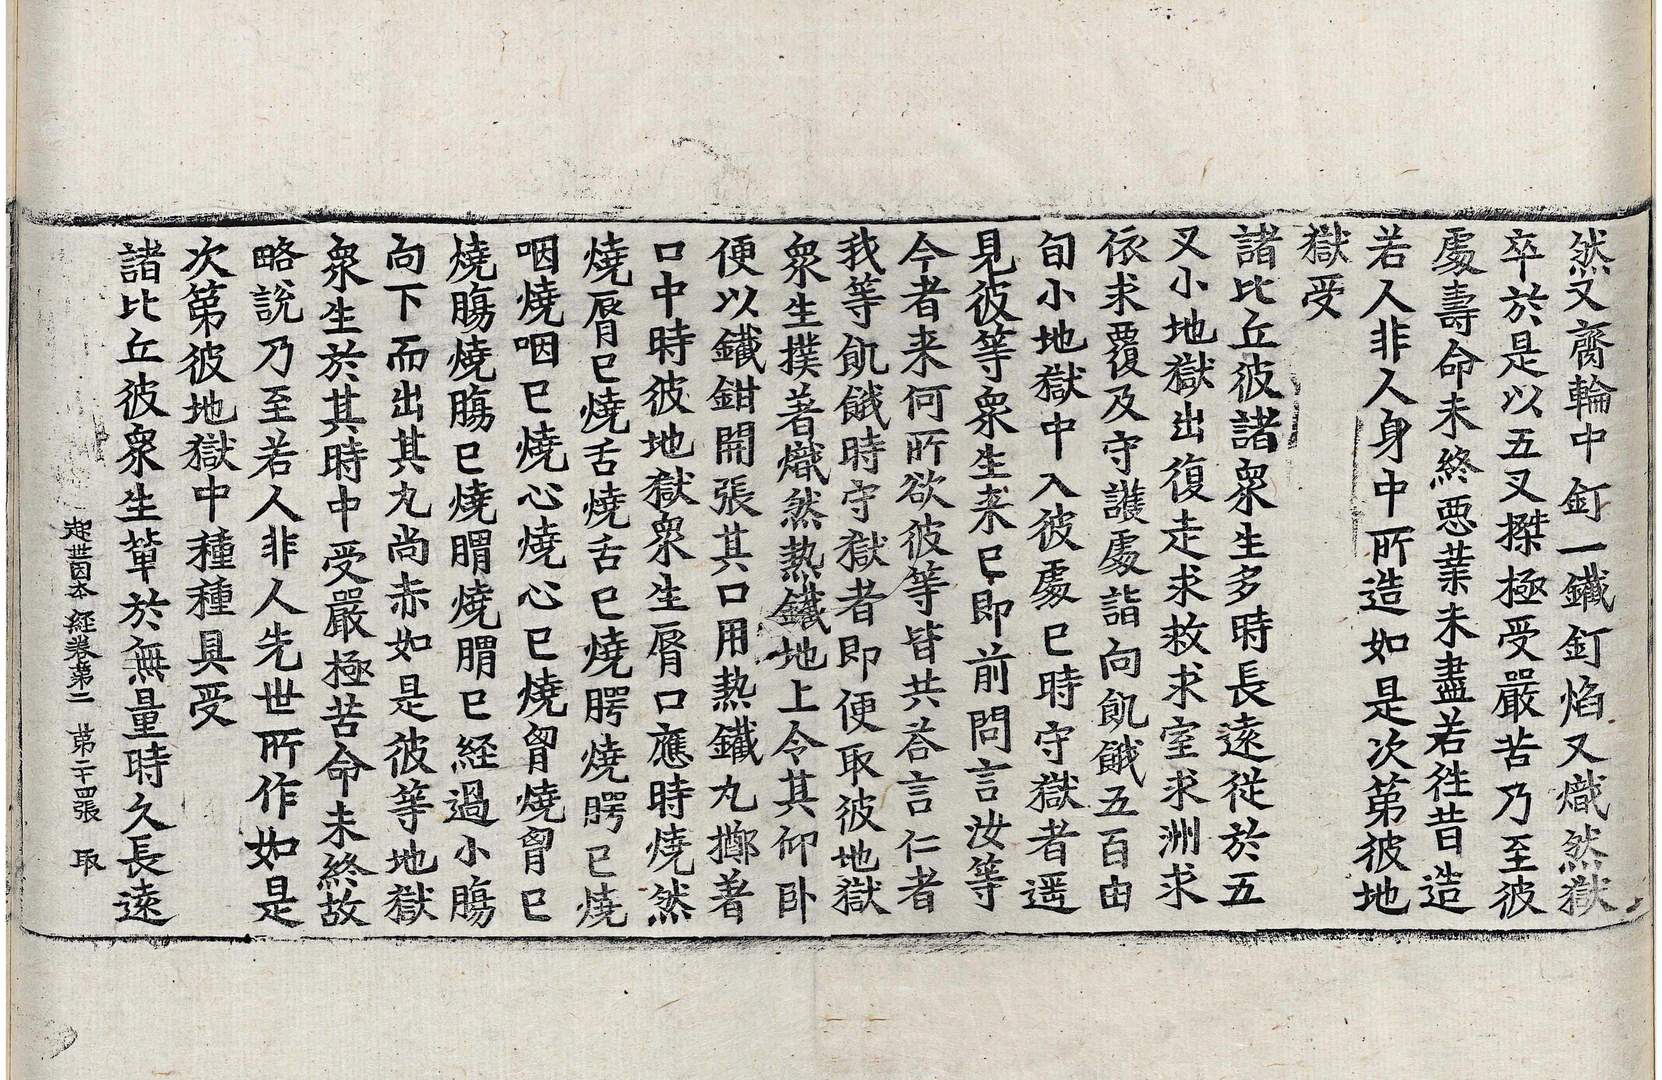 然又齎輪中釘一鐵釘焰又熾然獄
卒於是以五叉搩極受嚴苦乃至彼
處壽命未終惡業未盡若徃昔造
若人非人身中所造如是次第彼地
獄受
諸比丘彼諸衆生多時長遠從於五
叉小地獄出復走求救求室求洲求
依求覆及守護處詣向飢餓五百由
旬小地獄中入彼處已時守獄者遥
見彼等衆生来已即前問言汝等
今者来何所欲彼等皆共荅言仁者
我等飢餓時守獄者即便取彼地獄
衆生撲著熾然熱鐵地上令其仰卧
便以鐵鉗開張其口用熱鐵丸擲著
口中時彼地獄衆生脣口應時燒然
燒脣已燒舌燒舌已燒腭燒腭已燒
咽燒咽已燒心燒心已燒胷燒胷已
燒膓燒膓已燒䐗燒䐗已経過小膓
向下而出其丸尚赤如是彼等地獄
衆生於其時中受嚴極苦命未終故
略說乃至若人非人先世所作如是
次第彼地獄中種種具受
諸比丘彼衆生軰於無量時久長遠
起世因本経卷第二　第二十四張　取